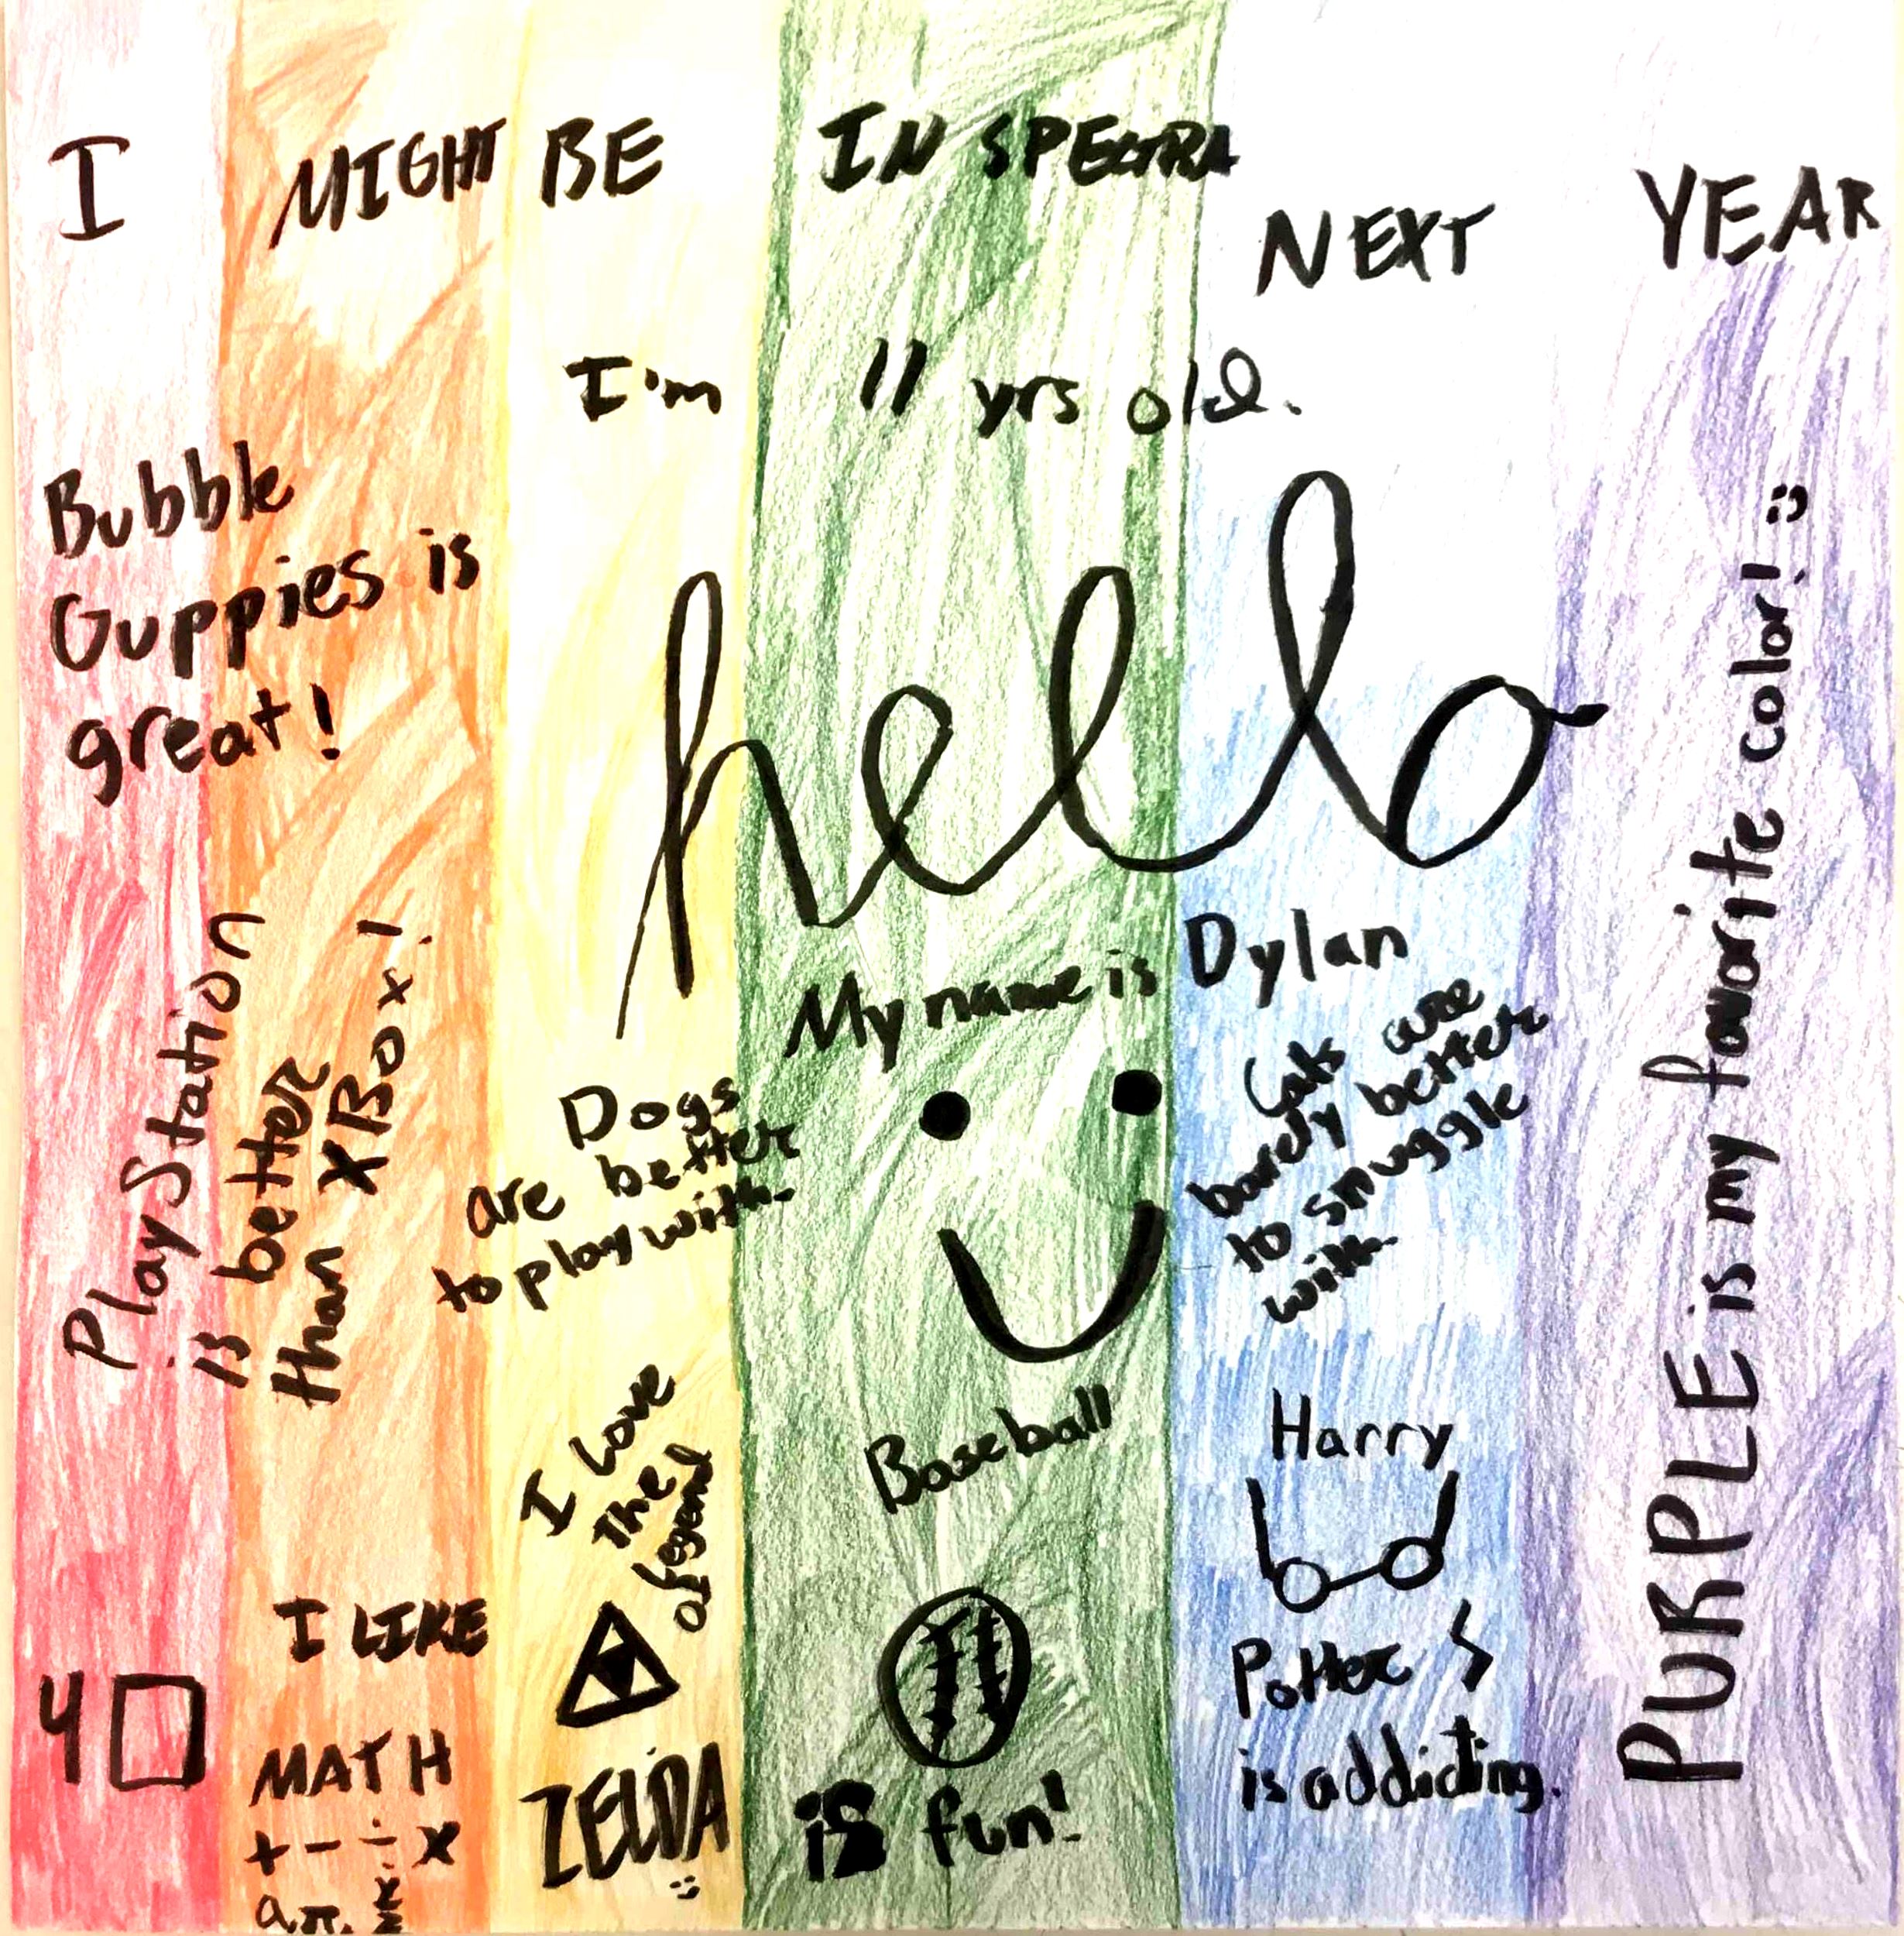 I MIGHT BE IN SPECTRA NEXT YEAR
I'm 11 yrs old.
Bubble
Guppies is
great!
hello
My name is Dylan
PlayStation
is better
than XBox!
Dogs
are better
to play with.
Cats are
barely better
to snuggle
with.
PURPLE is my favorite color! :)
I love
the
legend
of
ZELDA
:)
Baseball
is fun!
Harry
Potter
is addicting.
I LIKE
MATH
+ - ÷ x
4